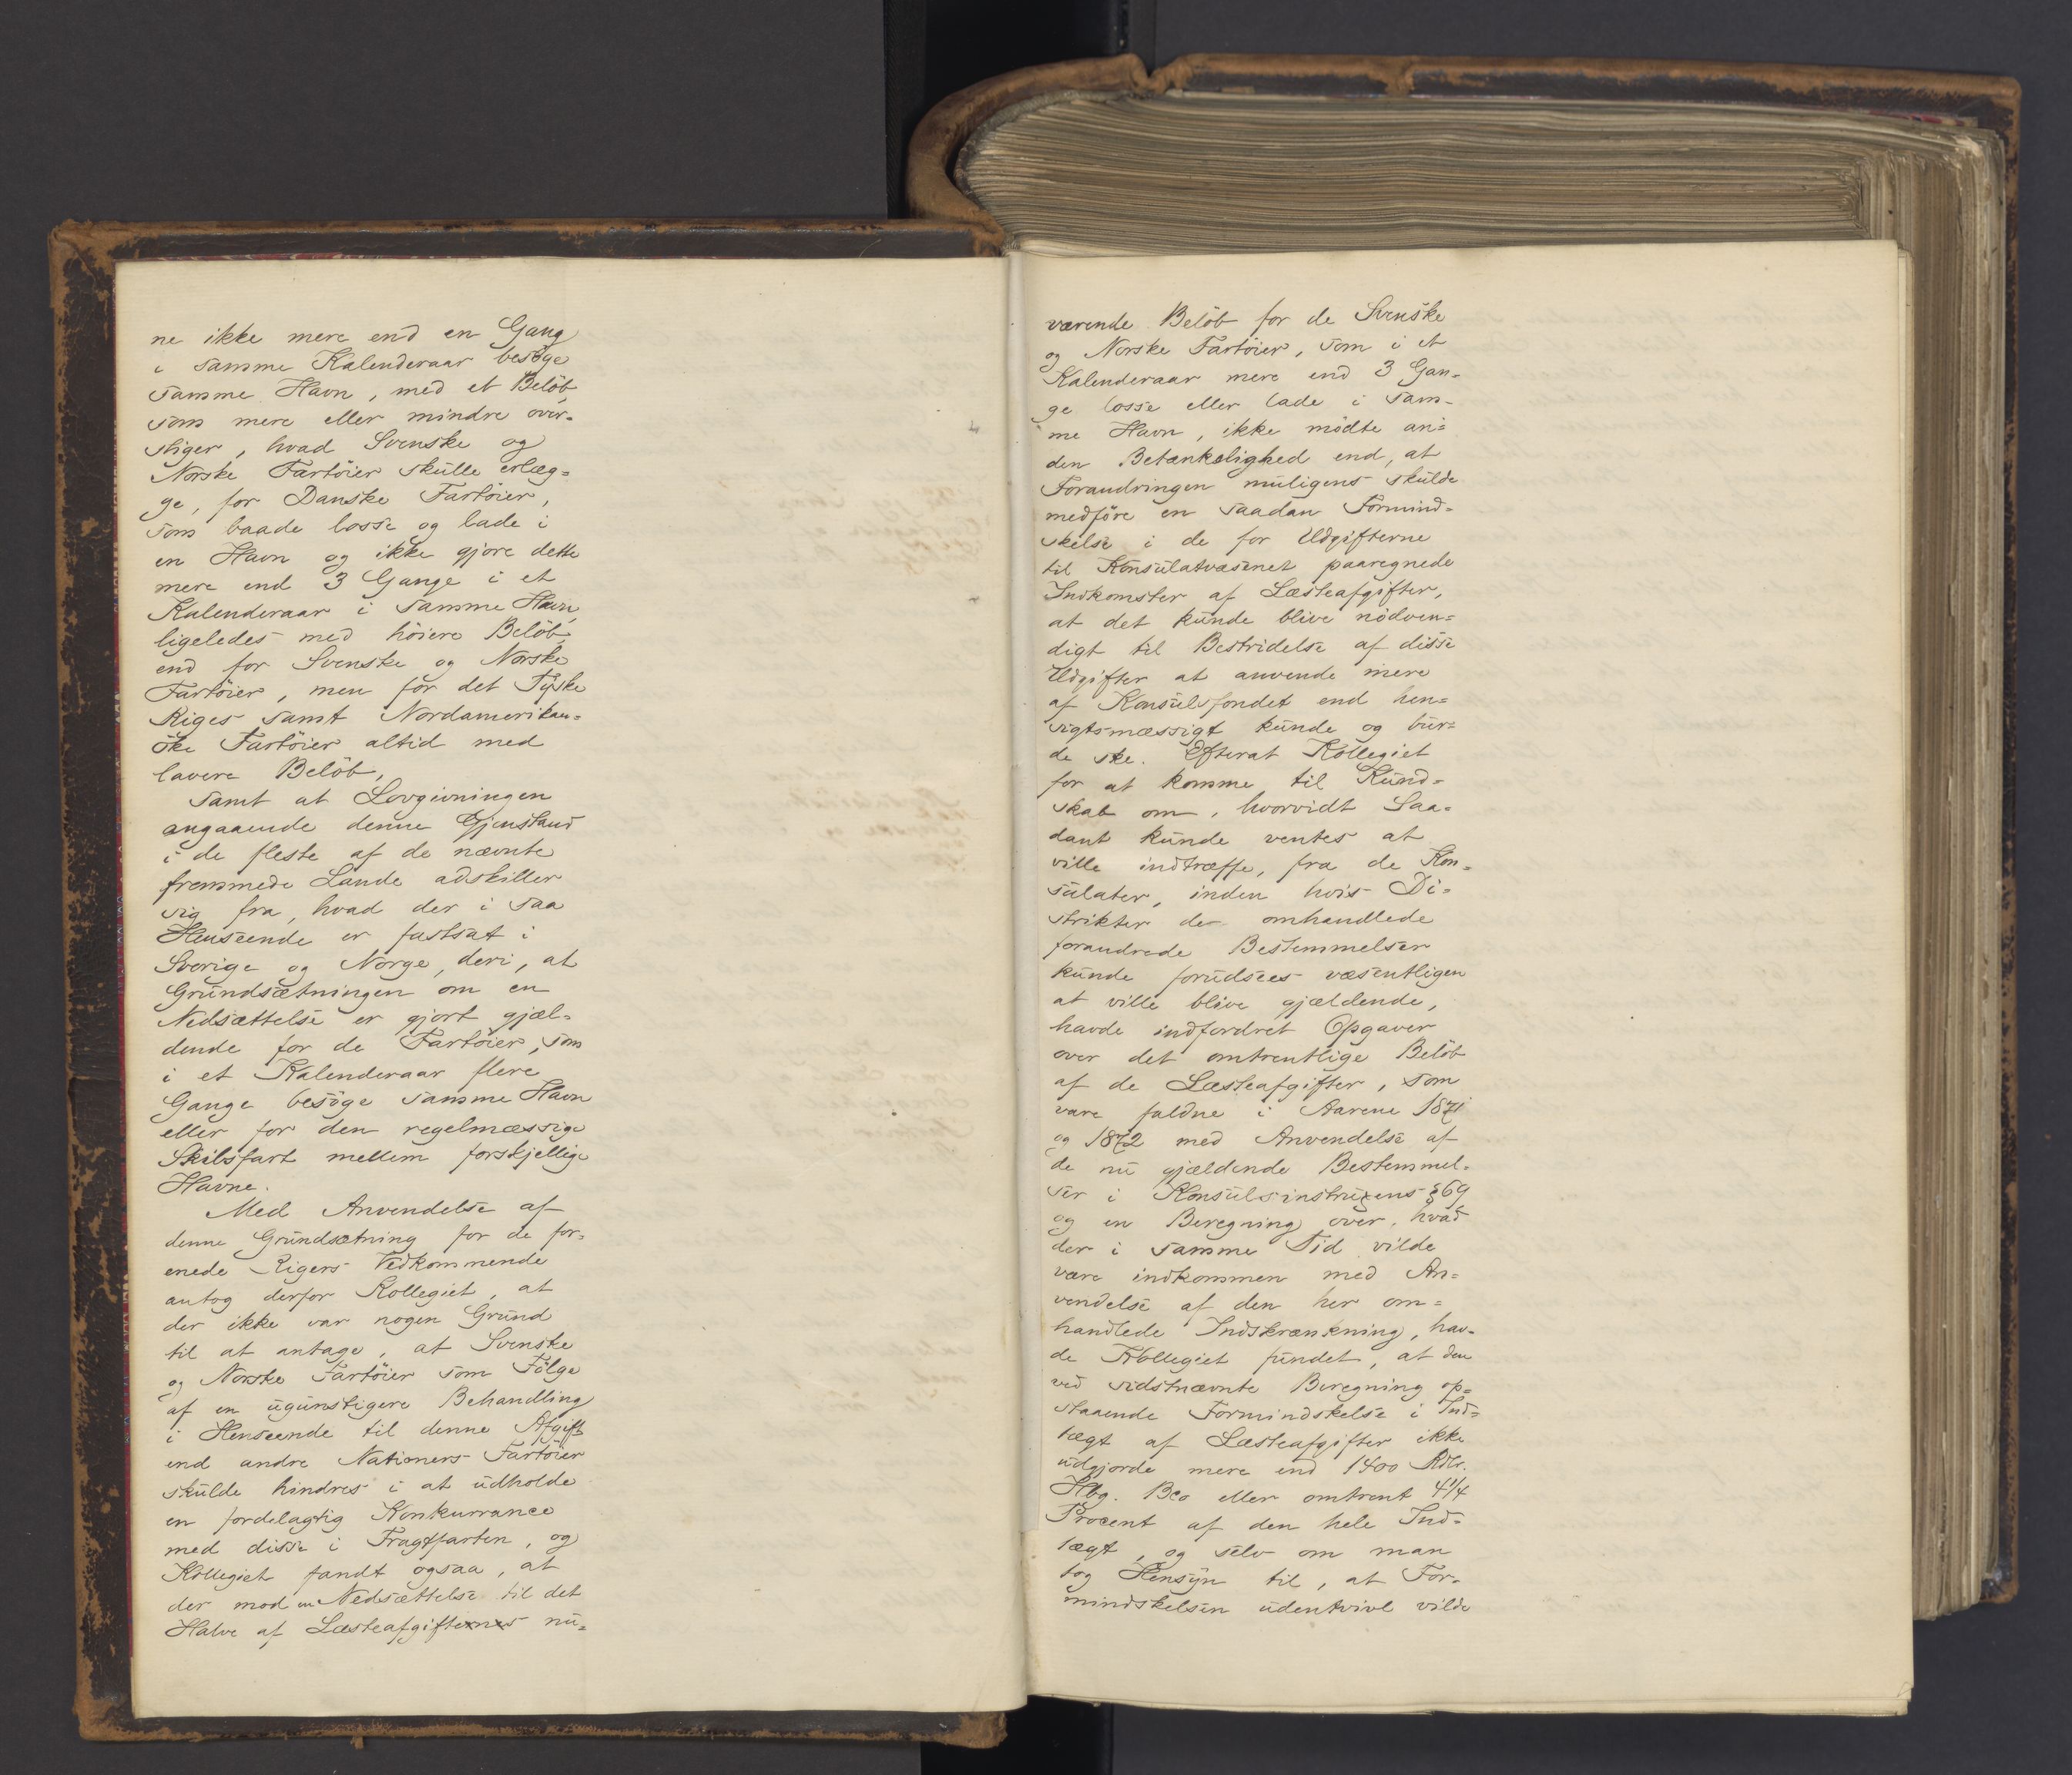 ne ikke mere end en Gang
i samme Kalenderaar besöge
samme Havn, med et Belöb,
som mere eller mindre over-
stiger, hvad Svenske og
Norske Fartöier skulle erlæg-
ge, for Danske Fartöier,
som baade losse og lade i
en Havn og ikke gjöre dette
mere end 3 Gange i et
Kalenderaar i samme Havn,
ligeledes med höiere Belöb,
end for Svenske og Norske
Fartöier, men for det Tyske
Riges samt Nordamerikan-
ske Fartöier altid med
lavere Belöb,
samt at Lovgivningen
angaaende denne Gjenstand
i de fleste af de nævnte
fremmede Lande adskiller
sig fra, hvad der i saa
Henseende er fastsat i
Sverige og Norge, deri, at
Grundsætningen om en
Nedsættelse er gjort gjæl-
dende for de Fartöier, som
i et Kalenderaar flere
Gange besöge samme Havn
eller for den regelmæssige
Skibsfart mellem forskjellige
Havne.
Med Anvendelse af
denne Grundsætning for de for-
enede Rigers Vedkommende
antog derfor Kollegiet, at
der ikke var nogen Grund
til at antage, at Svenske
og Norske Fartöier som Fölge
af en ugunstigere Behandling
i Henseende til denne Afgift
end andre Nationers Fartöier
skulde hindres i at udholde
en fordelagtig Konkurrance
med disse i Fragtfarten, og
Kollegiet fandt ogsaa, at
der mod en Nedsættelse til det
Halve af Læsteafgifternes nu-
værende Belöb for de Svenske
og Norske Fartöier, som i et
Kalenderaar mere end 3 Gan-
ge losse eller lade i sam-
me Havn, ikke mödte an-
den Betænkelighed end, at
Forandringen muligens skulde
medföre en saadan Formind-
skelse i de for Udgifterne
til Konsulatvæsenet paaregnede
Indkomster af Læsteafgifter,
at det kunde blive nödven-
digt til Bestridelse af disse
Udgifter at anvende mere
af Konsulsfondet end hen-
sigtsmæssigt kunde og bur-
de ske. Efterat Kollegiet
for at komme til Kund-
skab om, hvorvidt Saa-
dant kunde ventes at
ville indtræffe, fra de Kon-
sulater, inden hvis Di-
strikter de omhandlede
forandrede Bestemmelser
kunde forudsees væsentligen
at ville blive gjældende,
havde indfordret Opgaver
over det omtrentlige Belöb
af de Læsteafgifter, som
vare faldne i Aarene 1871
og 1872 med Anvendelse af
de nu gjældende Bestemmel-
ser i Konsulsinstruxens § 69
og en Beregning over, hvad
der i samme Tid vilde
være indkommen med An-
vendelse af den her om-
handlede Indskrænkning, hav-
de Kollegiet fundet, at den
ved sidstnævnte Beregning op-
staaende Formindskelse i Ind-
tægt af Læsteafgifter ikke
udgjorde mere end 1400 Rdlr.
Hbg. Bco eller omtrent 4 1/4
Procent af den hele Ind-
tægt, og selv om man
tog Hensyn til, at For-
mindskelsen udentvivl vilde